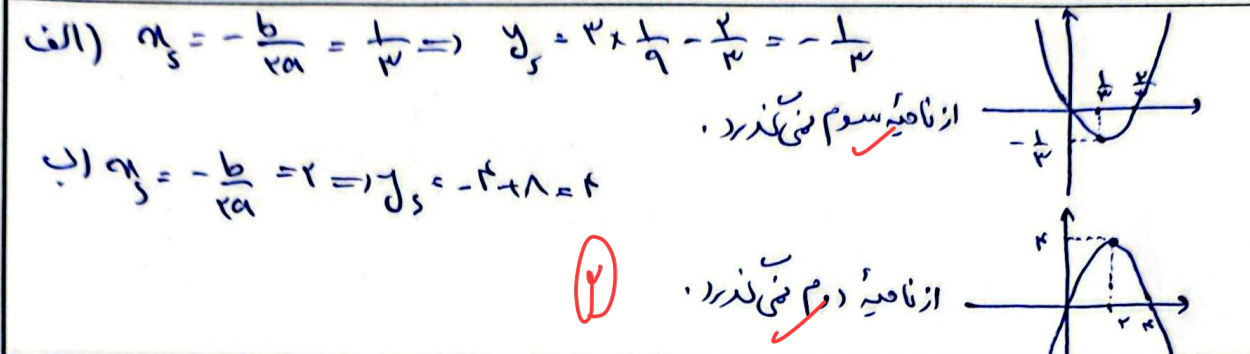 الف) x_s = -b/۲a = ۱/۳ => y_s = ۳ × ۱/۹ - ۲/۳ = -۱/۳
از ناحیهٔ سوم نمی‌گذرد.
۱/۳ ۲/۳
-۱/۳
ب) x_s = -b/۲a = ۲ => y_s = -۴+۸ = ۴
از ناحیهٔ دوم نمی‌گذرد.
۴
۲ ۴
۲